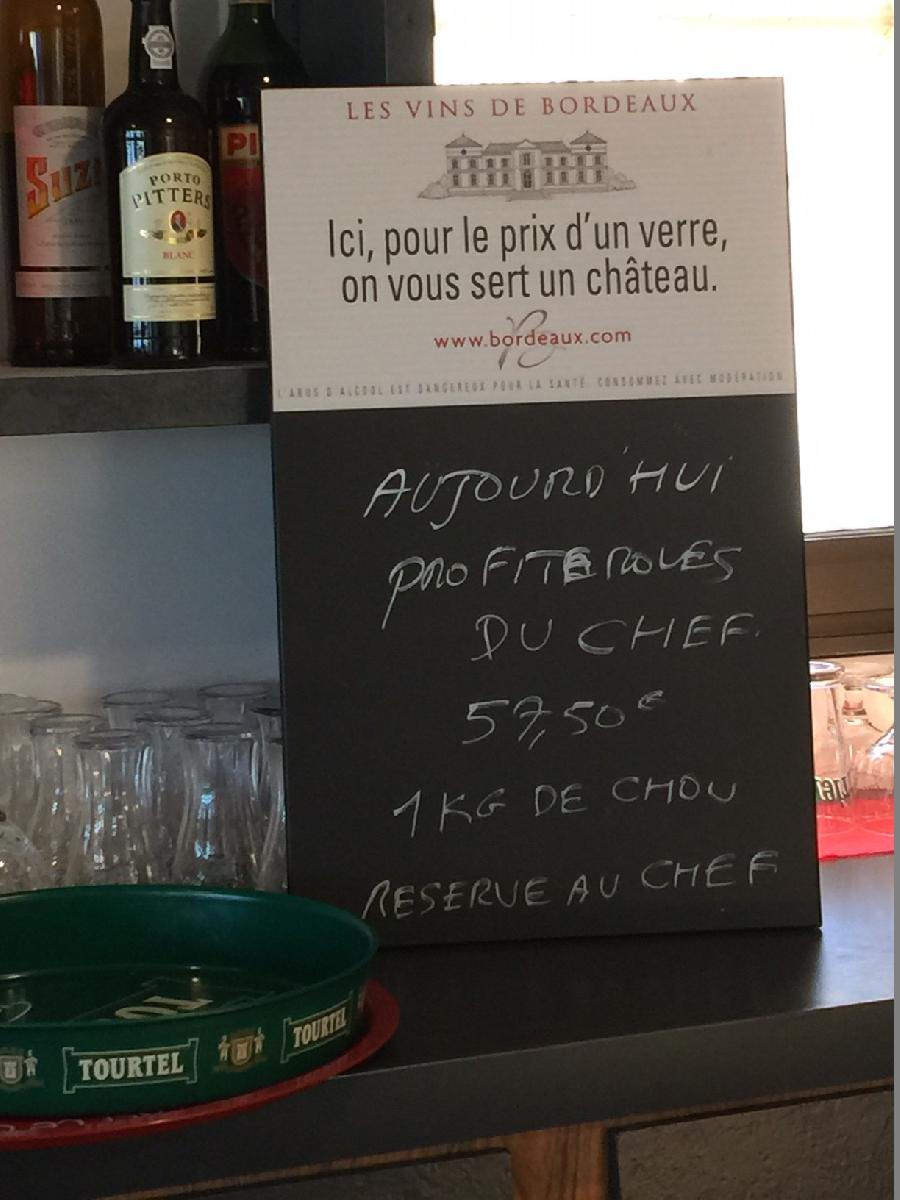 SUZ
PORTO
PITTERS
BLANC
PI
LES VINS DE BORDEAUX
Ici, pour le prix d'un verre,
on vous sert un château.
www.bordeaux.com
L'ABUS D'ALCOOL EST DANGEREUX POUR LA SANTÉ. CONSOMMEZ AVEC MODÉRATION.
AUJOURD'HUI
PROFITEROLES
DU CHEF.
57,50€
1KG DE CHOU
RESERVE AU CHEF
TOURTEL
TOURTEL